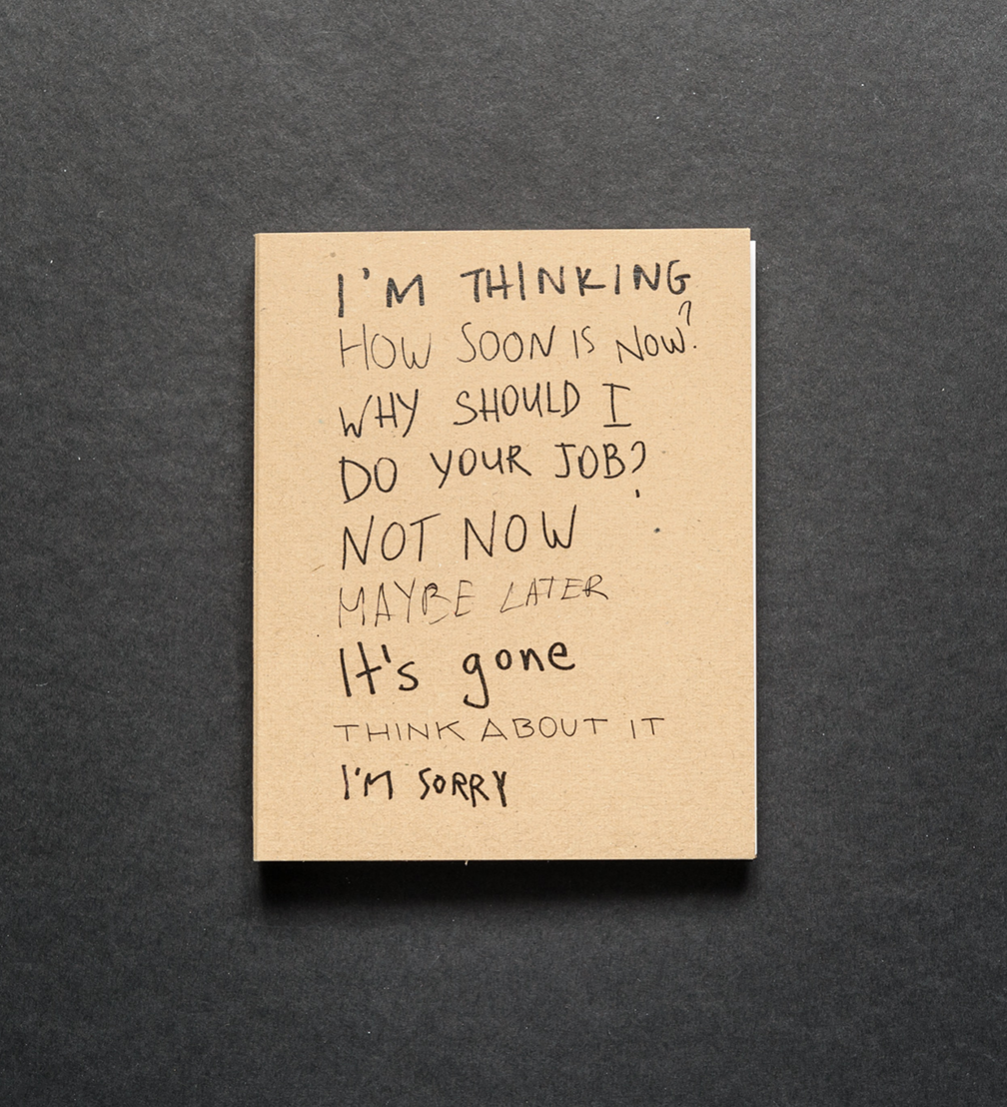 I'M THINKING
HOW SOON IS NOW?
WHY SHOULD I
DO YOUR JOB?
NOT NOW
MAYBE LATER
It's gone
THINK ABOUT IT
I'M SORRY